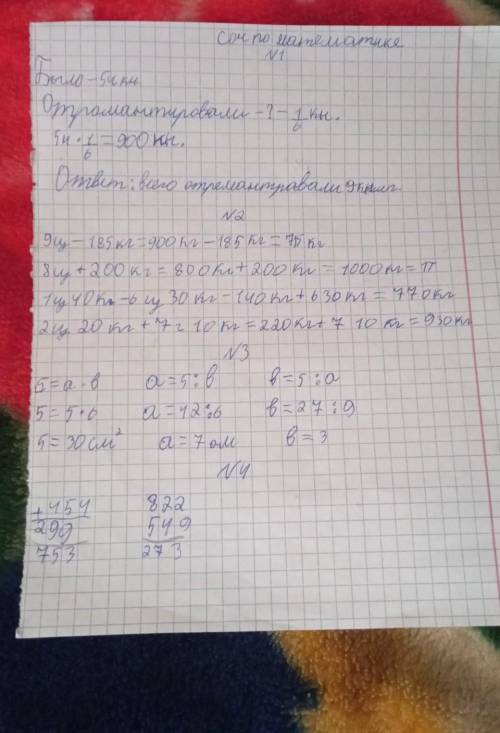 Соч по математике
№1
Было - 54 кн.
Отромантировали - ? - 1/6 кн.
54 · 1/6 = 900 кн.
Ответ: всего отремантравали 9
№2
9ц - 185 кг = 900 кг - 185 кг = 715 кг
8ц + 200 кг = 800 кг + 200 кг = 1000 кг = 1т
1ц 40 кг - 6ц 30 кг - 140 кг + 630 кг = 770 кг
2ц 20 кг + 7ц 10 кг = 220 кг + 7 10 кг = 930 кг
№3
S = a · в a = S : в в = S : a
S = 5 · 6 a = 42 : 6 в = 27 : 9
S = 30 см² a = 7 см в = 3
№4
+ 454 822
299 549
753 273